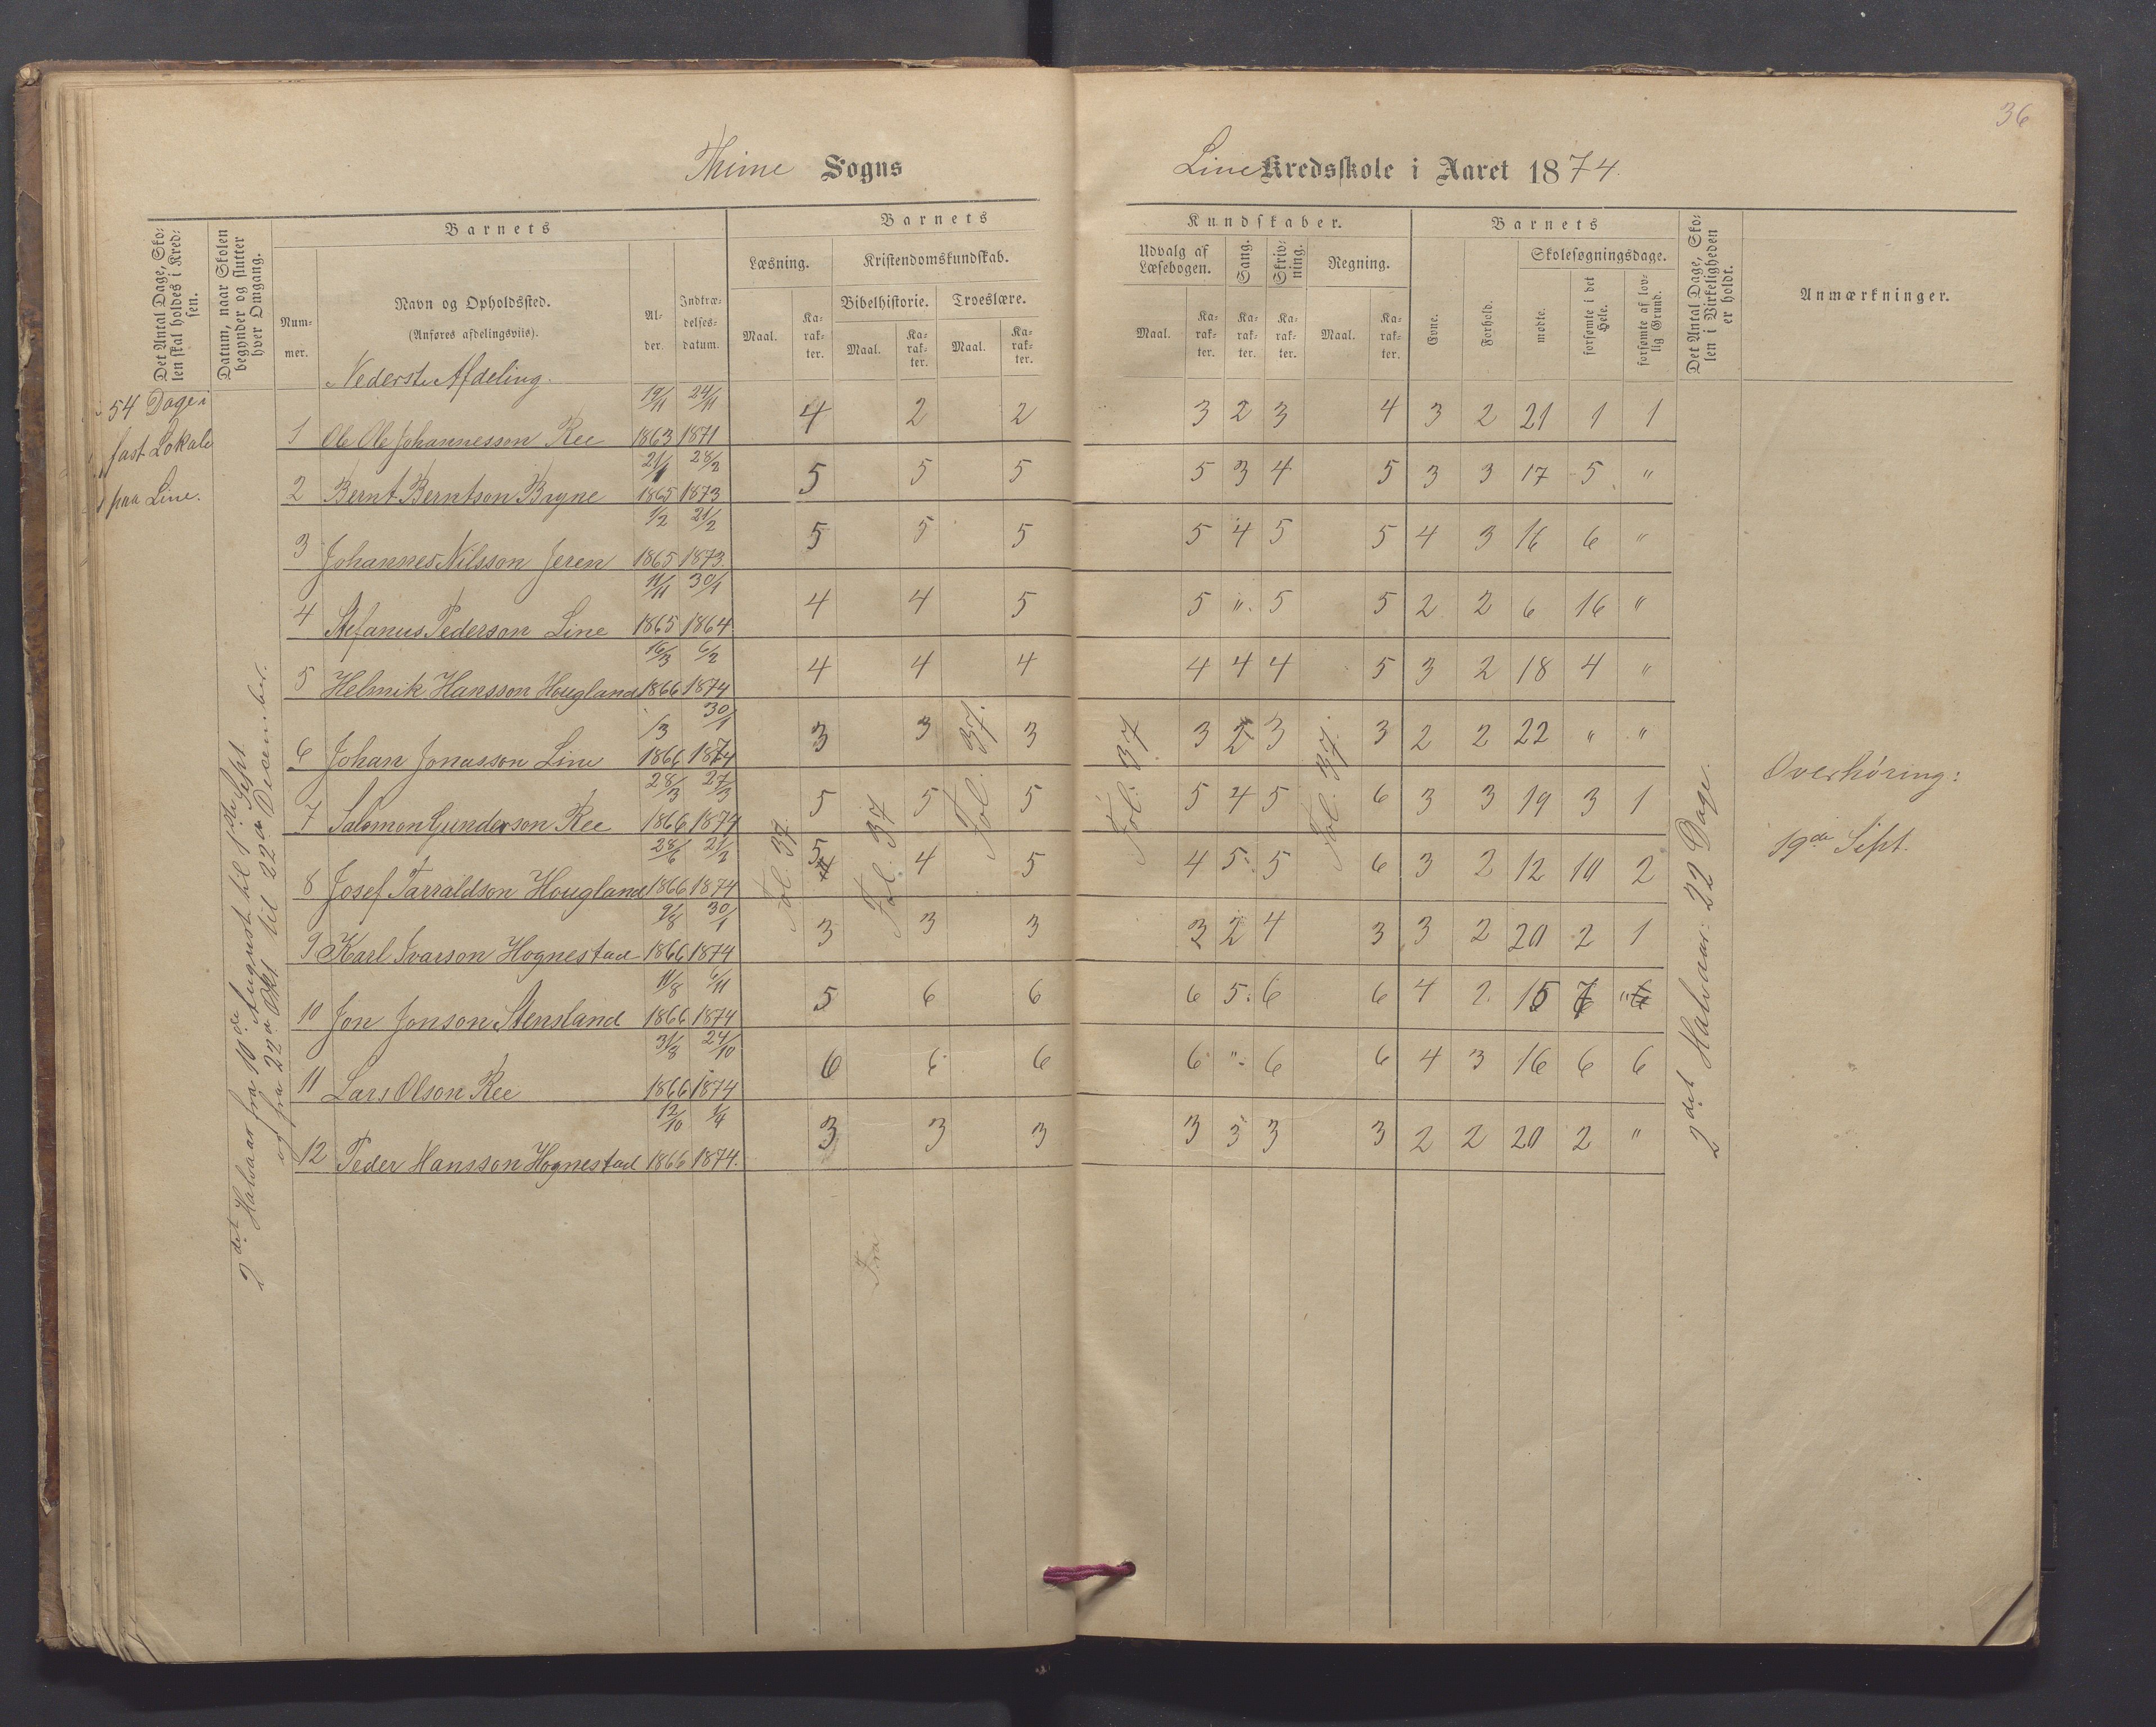 36
Thime Sogns
Line Kredsskole i Aaret 1874.
Det Antal Dage, Sko-
len skal holdes i Kred-
sen.
Datum, naar Skolen
begynder og slutter
hver Omgang.
Barnets
Num-
mer.
Navn og Opholdssted.
(Anføres afdelingsviis).
Al-
der.
Indtræ-
delses-
datum.
Barnets
Læsning.
Maal.
Ka-
rak-
ter.
Kristendomskundskab.
Bibelhistorie.
Maal.
Ka-
rak-
ter.
Troeslære.
Maal.
Ka-
rak-
ter.
Kundskaber.
Udvalg af
Læsebogen.
Maal.
Ka-
rak-
ter.
Sang.
Ka-
rak-
ter.
Skriv-
ning.
Ka-
rak-
ter.
Regning.
Maal.
Ka-
rak-
ter.
Barnets
Evne.
Forhold.
Skolesøgningsdage.
mødte.
forsømte i det
Hele.
forsømte af lov-
lig Grund.
Det Antal Dage, Sko-
len i Virkeligheden
er holdt.
Anmærkninger.
Nederste Afdeling.
54 Dage i
fast Lokale
paa Line.
2det Halvaar fra 10de August til 1ste Sept.
og fra 22de Okt til 22de December.
1 Ole Ole Johannesson Ree 19/11 1863 24/11 1871 4 2 2 3 2 3 4 3 2 21 1 1
2 Bernt Berntson Bryne 21/1 1865 28/2 1873 5 5 5 5 3 4 5 3 3 17 5 "
3 Johannes Nilsson Jeren 1/2 1865 21/2 1873. 5 5 5 5 4 5 5 4 3 16 6 "
4 Stefanus Pederson Line 11/11 1865 30/1 1864. 4 4 5 5 " 5 5 2 2 6 16 "
5 Helmik Hansson Hougland 16/3 1866 6/2 1874 4 4 4 4 4 4 5 3 2 18 4 "
6 Johan Jonasson Line /3 1866 30/1 1874 3 3 3 3 2 3 3 2 2 22 " "
7 Salomon Gunderson Ree 28/3 1866 27/3 1874 5 5 5 5 4 5 6 3 3 19 3 1
8 Josef Tarraldson Hougland 28/6 1866 21/2 1874 5 4 5 4 5 5 6 3 2 12 10 2
9 Karl Ivarson Hognestad 9/8 1866 30/1 1874 3 3 3 3 2 4 3 3 2 20 2 1
10 Jon Jonson Stensland 11/8 1866 6/11 1874 5 6 6 6 5 6 6 4 2 15 7 "
11 Lars Olson Ree 31/8 1866 24/10 1874 6 6 6 6 " 6 6 4 3 16 6 6
12 Peder Hansson Hognestad 12/10 1866 1/4 1874. 3 3 3 3 3 3 3 2 2 20 2 "
Fol. 37.
Fol. 37
Fol. 37.
Fol. 37
Fol. 37.
Fra
2det Halvaar: 22 Dage.
Overhøring:
19de Sept.